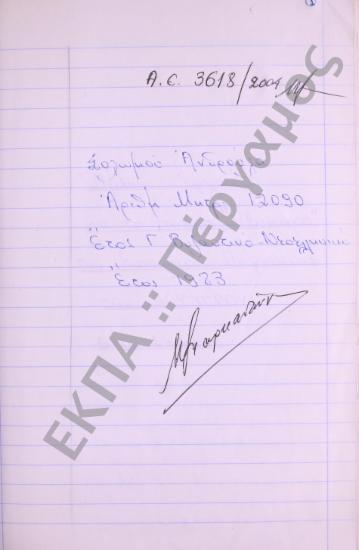 Α.Ε. 3618/2004
Σολωμού Ανδρ
Αριθμ Μητρ 12090
Έτος Γ Βυζαντινό-Νεοελληνικό
Έτος 1983
ΕΚΠΑ :: Πέργαμος